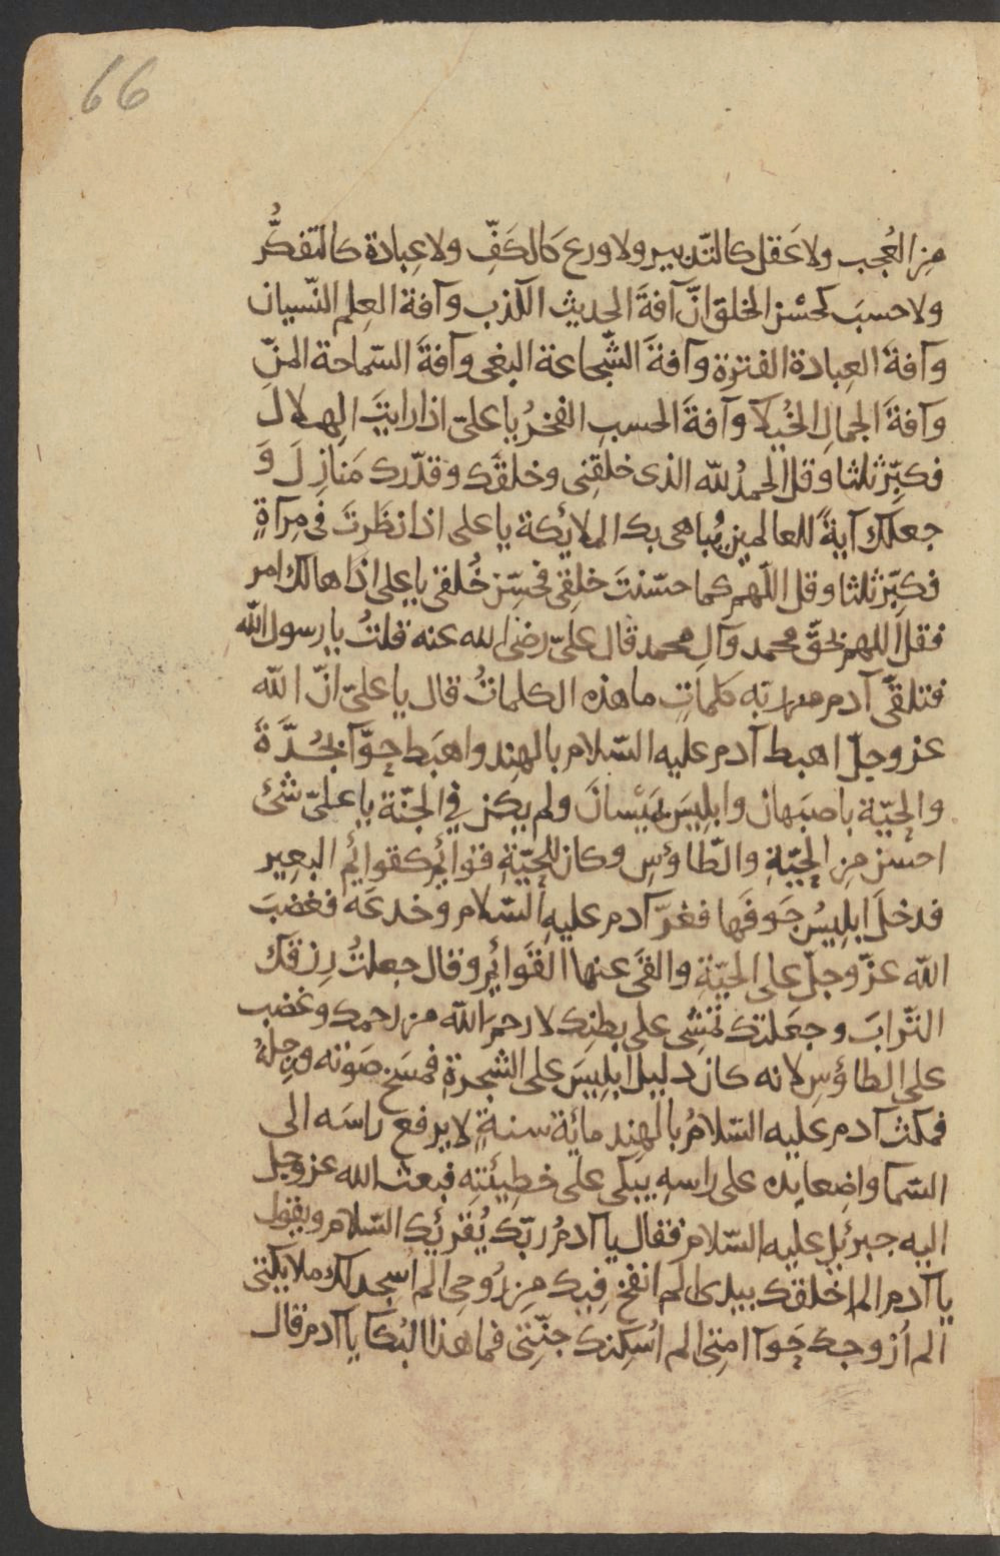 66
مِن العُجب ولا عَقل كالتّدبير ولا ورع كَالكَفِّ ولا عِبادة كالتّفكُّر
ولا حسبَ كحُسْن الخلق انّ آفةَ الحديثِ الكذب وآفة العِلم النّسيان
وآفةَ العِبادة الفترة وآفةَ الشّجاعة البغى وآفةَ السّماحة المنّ
وآفةَ الجمالِ الخُيلآ وآفةَ الحسبِ الفخرُ يا علىّ اذا رايتَ الهِلالَ
فكبِّر ثلثا وقل الحمدُ للّه الذى خلقنِى وخلقَك وقدّرك مَنازِلَ وَ
جعلك آيةً للعالمين يُباهى بك الملائكة يا على اذا نظَرتَ فى مِرآةٍ
فكبِّر ثلثا وقل اللّهمّ كما حسّنتَ خلقِى فحسِّن خُلقى يا على اذا هالك امر
فقل اللهم بحقّ محمد وآلِ محمد قال علىّ رضى الله عنه قلتُ يا رسول الله
فتلقّى آدم من ربّه كلماتٍ ما هذه الكلماتُ قال يا علىّ انّ الله
عز وجلّ اهبط آدم عليه السّلام بالهِند واهبَط حوّآ بجُدَّةَ
والحيّة باصبَهان وابلِيسَ بمَيْسانَ ولم يكن في الجنّة يا علىّ شئ
احسن مِن الحيّةِ والطّاؤسِ وكان للحيّةِ قوائم كقوائِم البعِير
فدخلَ ابلِيسُ جَوفَها فغرّ آدم عليهِ السّلام وخدعَه فغضبَ
الله عزّ وجلّ على الحيّةِ والقَى عنها القَوائِم وقال جعلتُ رِزقك
التّرابَ وجعَلتك تمشِى على بطنِك لا رحمَ الله من رحمك وغضب
على الطاؤسِ لانه كان دليل ابلِيسَ على الشجرةِ فمسَخ صَوته ورِجلَهُ
فمكث آدم عليه السّلامُ بالهِند مائة سنةٍ لا يرفع راسَه الى
السّما واضِعا يده على راسهِ يبكى على خطِيئتِه فبعث الله عز وجل
اليه جبرئيل عليه السّلام فقال يا آدمُ ربّك يُقرئك السّلام ويقول
يا آدم الم اخلقك بيدى الم انفخ فِيك مِن رُوحِى الم اسجد لك ملايكتى
الم اُزوجك حَوآ امتِى الم اسْكِنك جنّتِى فما هذا البُكآ يا آدم قال